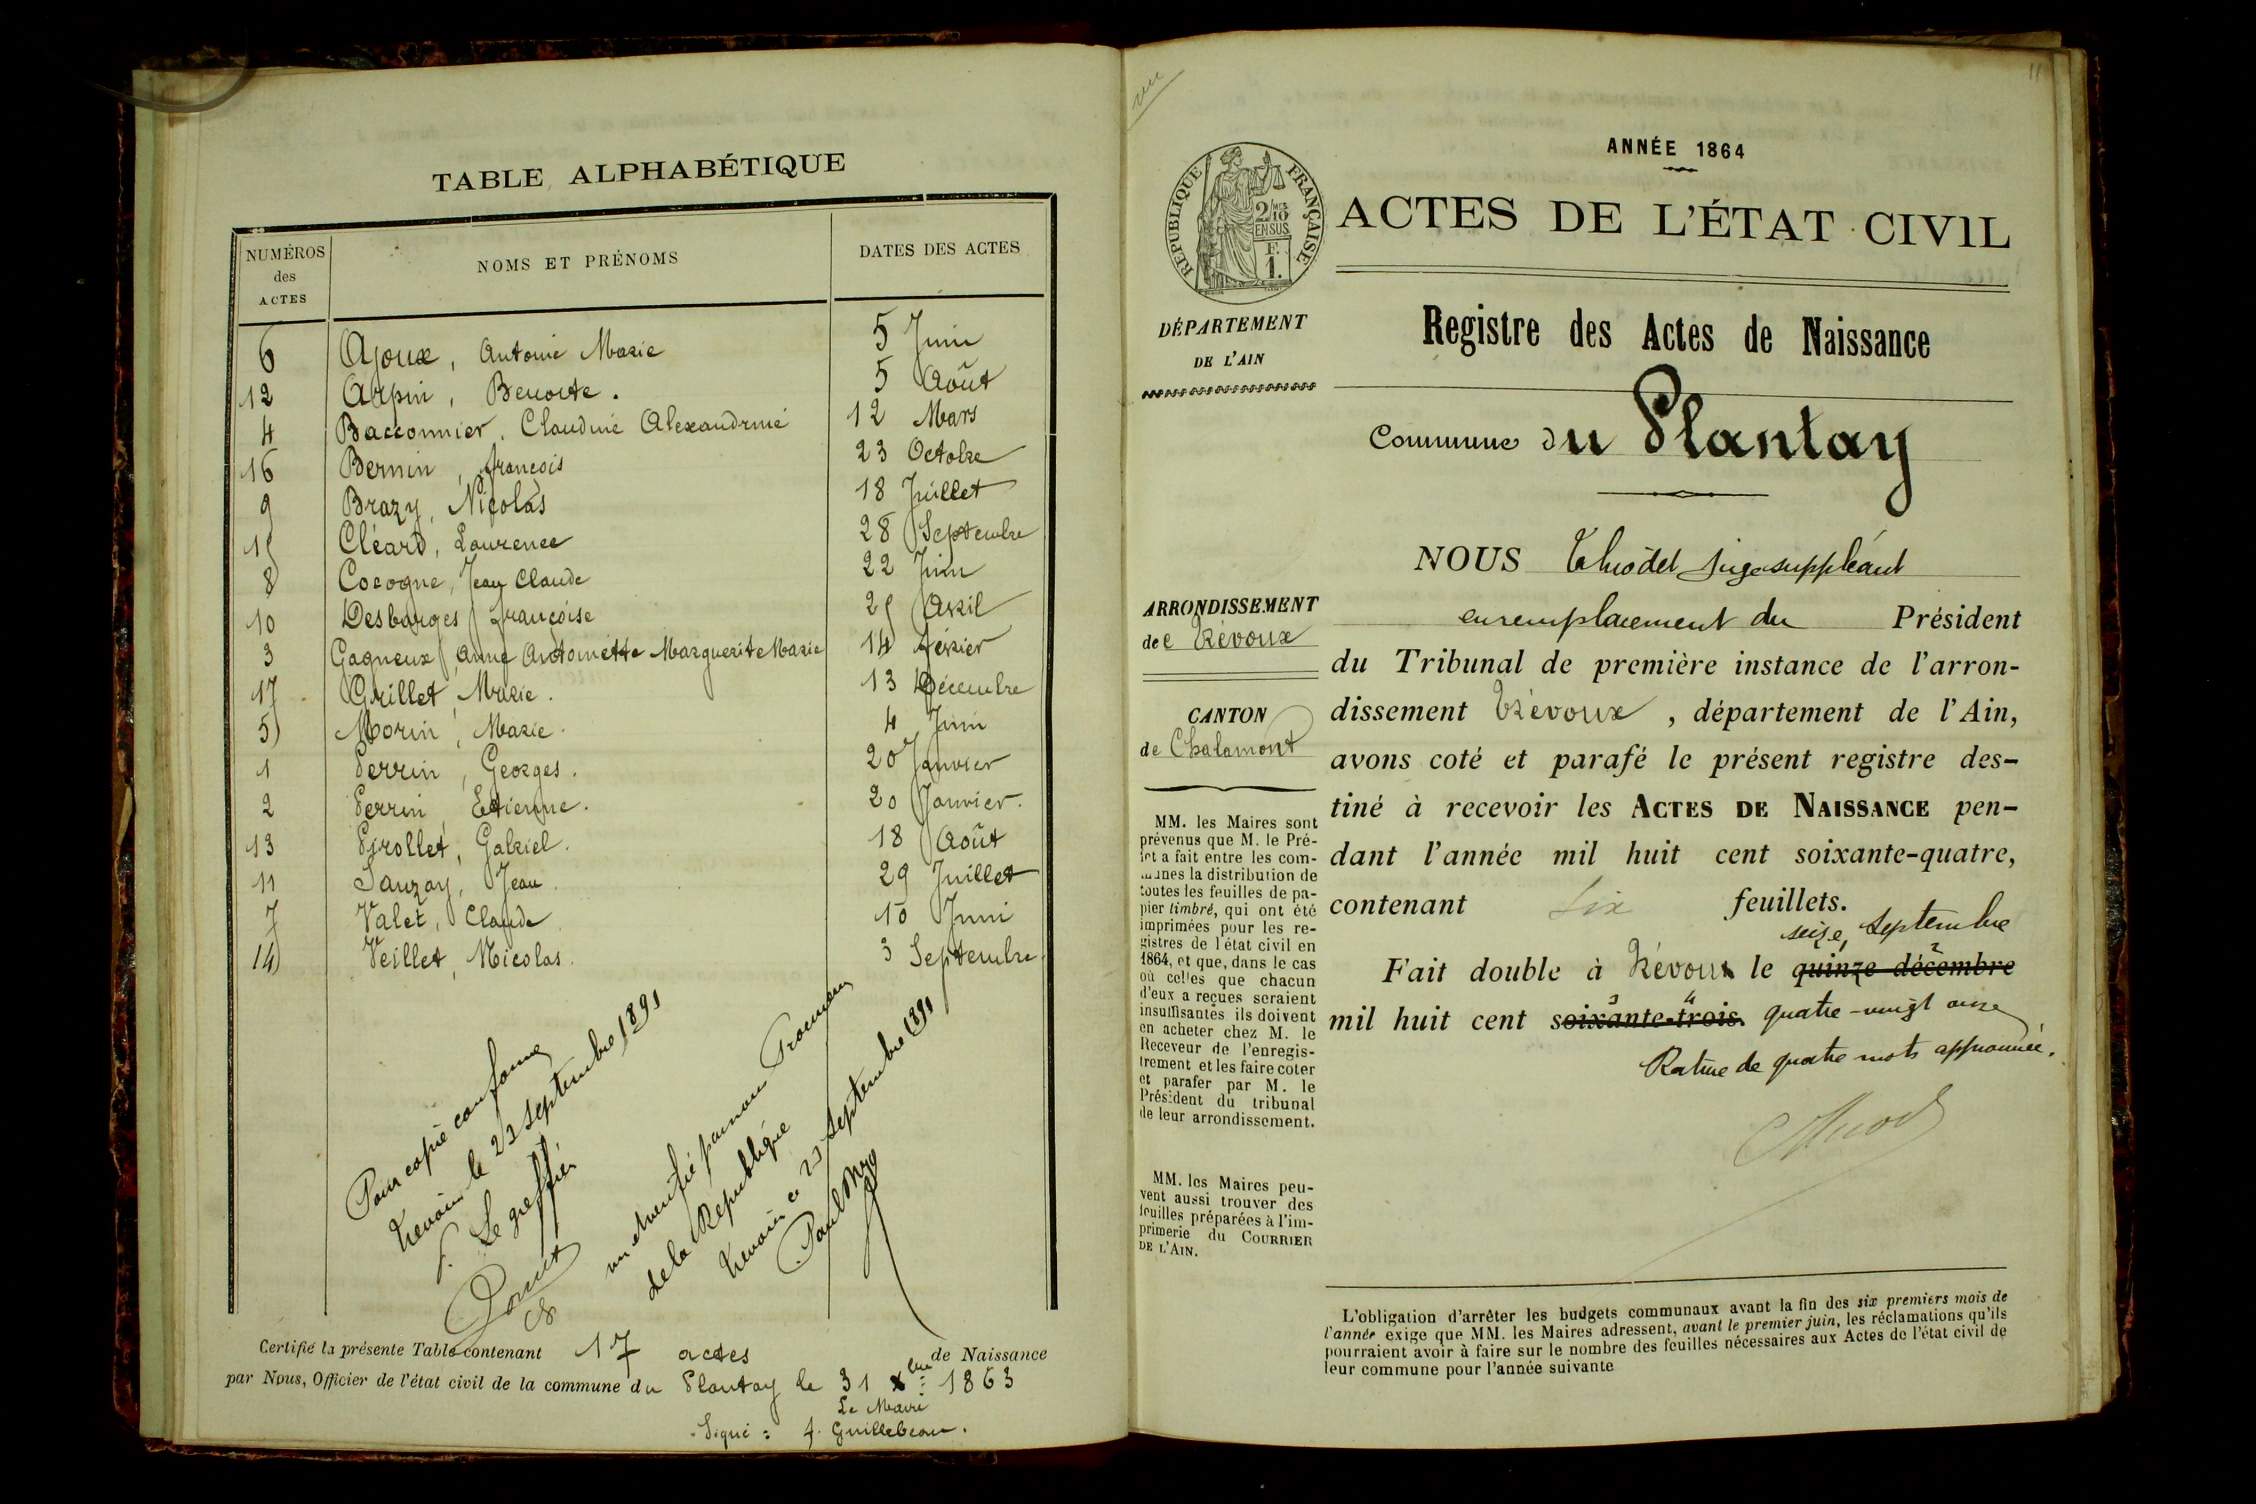 TABLE ALPHABÉTIQUE
NUMÉROS des ACTES NOMS ET PRÉNOMS DATES DES ACTES
6 Ajoux, Antoine Marie 5 Juin
12 Arpin, Benoite. 5 Août
4 Bacconnier, Claudine Alexandrine 12 Mars
16 Bernin, françois 23 Octobre
9 Brazy, Nicolas 18 Juillet
15 Cléard, Laurence 28 Septembre
8 Cocogne, Jean Claude 22 Juin
10 Desbarges françoise 25 Avril
3 Gagneux, Anne Antoinette Marguerite Marie 14 février
17 Grillet, Marie. 13 Décembre
5 Morin, Marie. 4 Juin
1 Perrin, Georges. 20 Janvier
2 Perrin, Etienne. 20 Janvier.
13 Pirollet, Gabriel. 18 Août
11 Sauzay, Jean. 29 Juillet
7 Valet, Claude 10 Juin
14 Veillet, Nicolas. 3 Septembre.
Pour copie conforme
Trévoux le 23 septembre 1891
Le greffier
vu et vérifié par nous Procureur
de la République
Trévoux ce 23 septembre 1891
Certifié la présente Table contenant 17 actes de Naissance
par Nous, Officier de l'état civil de la commune du Plantay le 31 Xbre 1863
Le Maire
Signé : f. Guillebeau.
vu
11
ANNÉE 1864
RÉPUBLIQUE FRANÇAISE
2/10 MES
EN SUS
F.
1.
ACTES DE L'ÉTAT CIVIL
DÉPARTEMENT
DE L'AIN
Registre des Actes de Naissance
Commune du Plantay
ARRONDISSEMENT
de Trévoux
CANTON
de Chalamont
MM. les Maires sont
prévenus que M. le Pré-
fet a fait entre les com-
munes la distribution de
toutes les feuilles de pa-
pier timbré, qui ont été
imprimées pour les re-
gistres de l'état civil en
1864, et que, dans le cas
où celles que chacun
d'eux a reçues seraient
insuffisantes ils doivent
en acheter chez M. le
Receveur de l'enregis-
trement et les faire coter
et parafer par M. le
Président du tribunal
de leur arrondissement.
MM. les Maires peu-
vent aussi trouver des
feuilles préparées à l'im-
primerie du COURRIER
DE L'AIN.
NOUS Thiodet juge suppléant
en remplacement du Président
du Tribunal de première instance de l'arron-
dissement Trévoux, département de l'Ain,
avons coté et parafé le présent registre des-
tiné à recevoir les ACTES DE NAISSANCE pen-
dant l'année mil huit cent soixante-quatre,
contenant six feuillets.
seize septembre
Fait double à Trévoux le quinze décembre
mil huit cent soixante-trois. quatre-vingt onze
Rature de quatre mots approuvée.
L'obligation d'arrêter les budgets communaux avant la fin des six premiers mois de
l'année exige que MM. les Maires adressent, avant le premier juin, les réclamations qu'ils
pourraient avoir à faire sur le nombre des feuilles nécessaires aux Actes de l'état civil de
leur commune pour l'année suivante